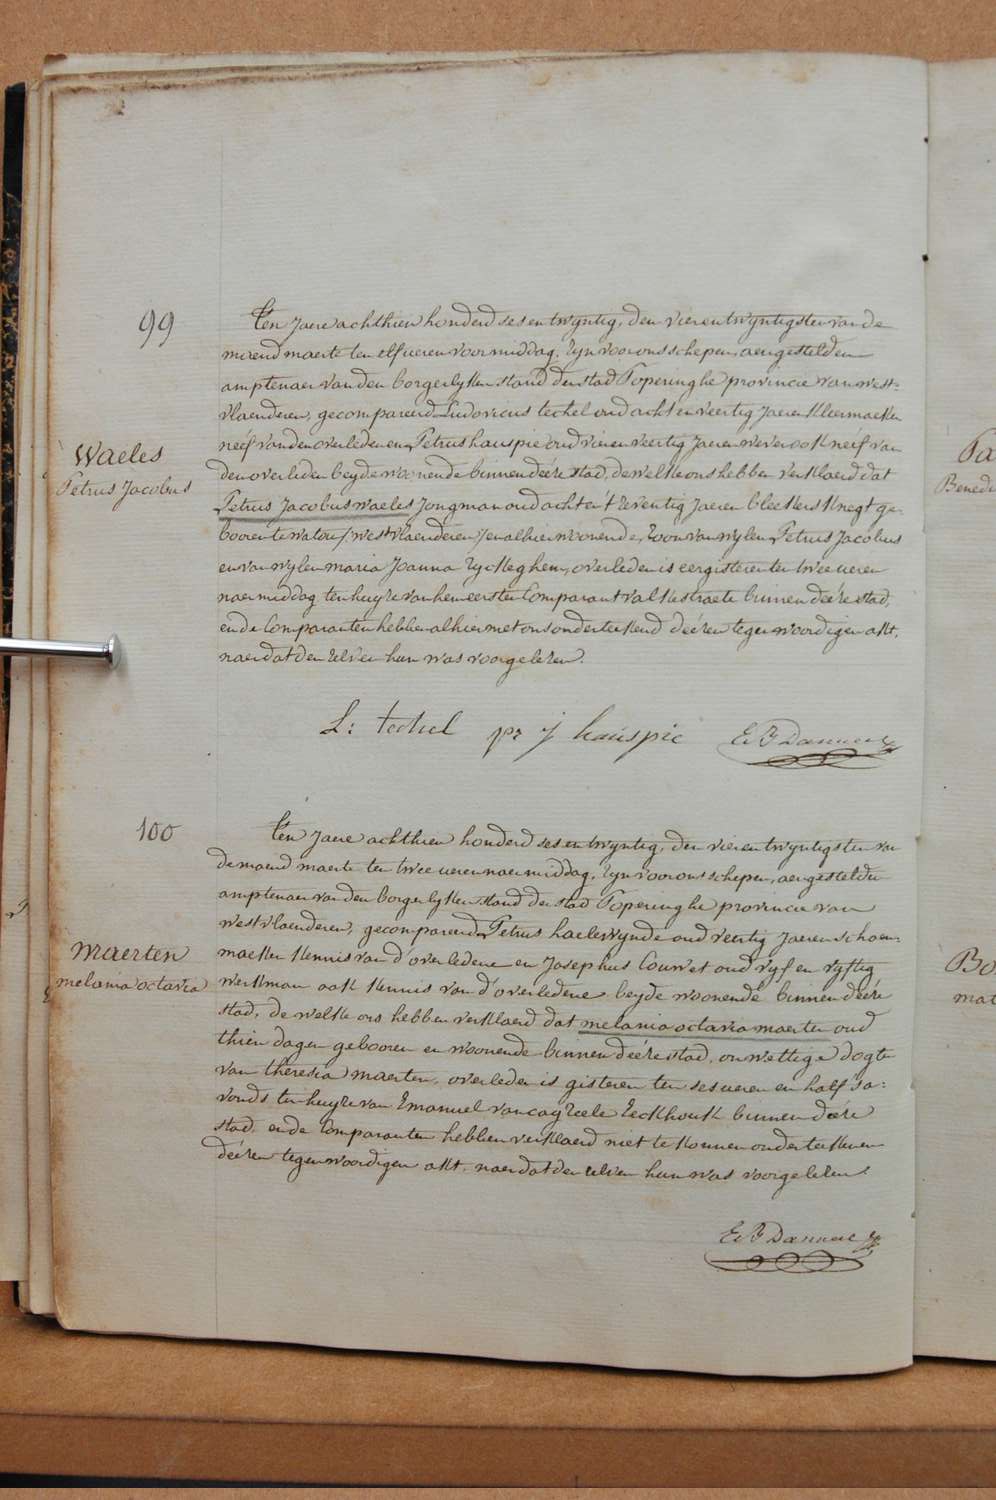 99
Waeles
Petrus Jacobus
Ten Jaere achthien honderd ses en twyntig, den vier en twyntigsten van de
maend maerte ten elf ueren voormiddag, zyn voor ons schepen, aengestelden
amptenaer van den borgerlyken stand der stad Poperinghe provincie van west-
vlaenderen, gecompareerd Ludovicus techel oud acht en veertig Jaeren kleermaeker
neéf van den overledenen, Petrus hauspie oud vier en veertig Jaeren wever ook neéf van
den overleden beyde woonende binnen deéze stad, de welke ons hebben verklaerd dat
Petrus Jacobus waeles Jongman oud acht en t'zeventig Jaeren bleekers knegt ge-
booren te watou /westvlaenderen/ en alhier woonende, zoon van wylen Petrus Jacobus
en van wylen maria Joanna Ryckeghem, overleden is eergisteren ten twee ueren
naermiddag ten huyze van hem eersten Comparant valkestraete binnen deéze stad,
en de Comparanten hebben alhier met ons onderteekend deézen tegenwoordigen akt,
naer dat den zelven hun was voorgelezen.
L: techel pr j hauspie E B Danneel
100
Maerten
melania octavia
Ten Jaere achthien honderd ses en twyntig, den vier en twyntigsten van
de maend maerte ten twee ueren naermiddag, zyn voor ons schepen, aengestelden
amptenaer van den borgerlyken stand der stad Poperinghe provincie van
westvlaenderen, gecompareerd Petrus haelewynde oud veertig Jaeren schoen-
maeker kennis van d'overledene en Josephus Couwet oud vyf en vyftig
werkman ook kennis van d'overledene beyde woonende binnen deéze
stad, de welke ons hebben verklaerd dat melania octavia maerten oud
thien dagen gebooren en woonende binnen deéze stad, onwettige dogter
van theresia maerten, overleden is gisteren ten ses ueren en half s'a-
vonds ten huyze van Emanuel vancayzeele Eeckhouk binnen deéze
stad, en de Comparanten hebben verklaerd niet te konnen onderteekenen
deézen tegenwoordigen akt, naer dat den zelven hun was voorgelezen.
E B Danneel